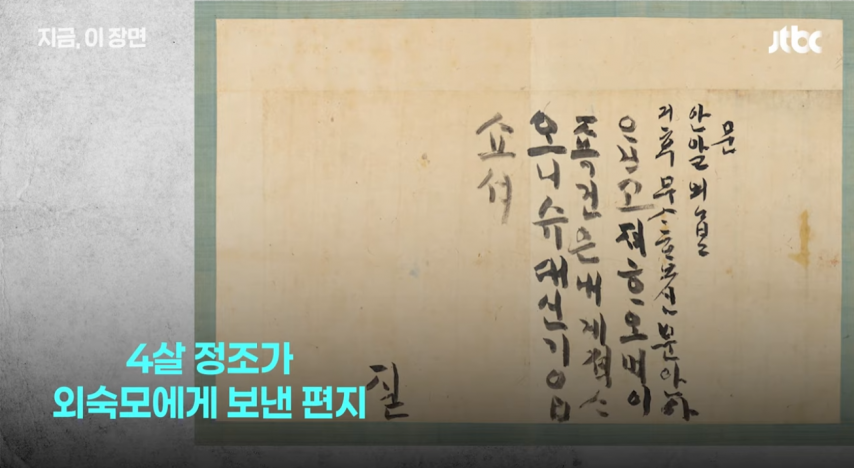 지금, 이 장면
jtbc
문
안 알외ᄋᆞᆸ고
긔후 무ᄉᆞᄒᆞ오신 문안 아
ᄋᆞᆸ고져 ᄒᆞ오며 이
죡건은 내게 젹ᄉᆞ
오니 슈대 신기ᄋᆞᆸ
쇼셔
질
4살 정조가
외숙모에게 보낸 편지